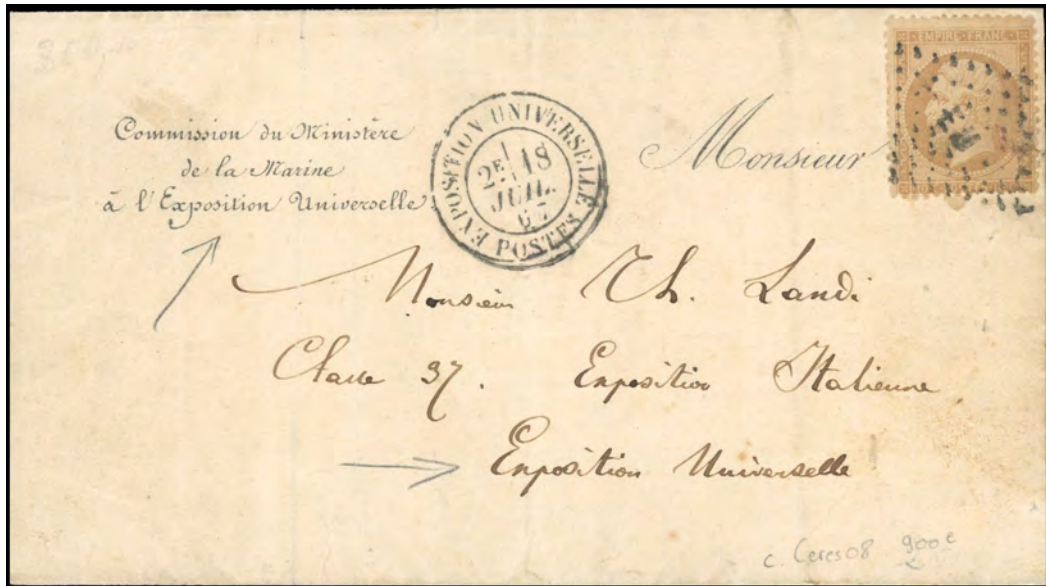 EMPIRE FRANC
Commission du Ministère
de la Marine
à l'Exposition Universelle
EXPOSITION UNIVERSELLE
POSTES
2E 18
JUIL.
67
Monsieur
Monsieur Th. Landi
Classe 37. Exposition Italienne
Exposition Universelle
c. Ceres 08 900€